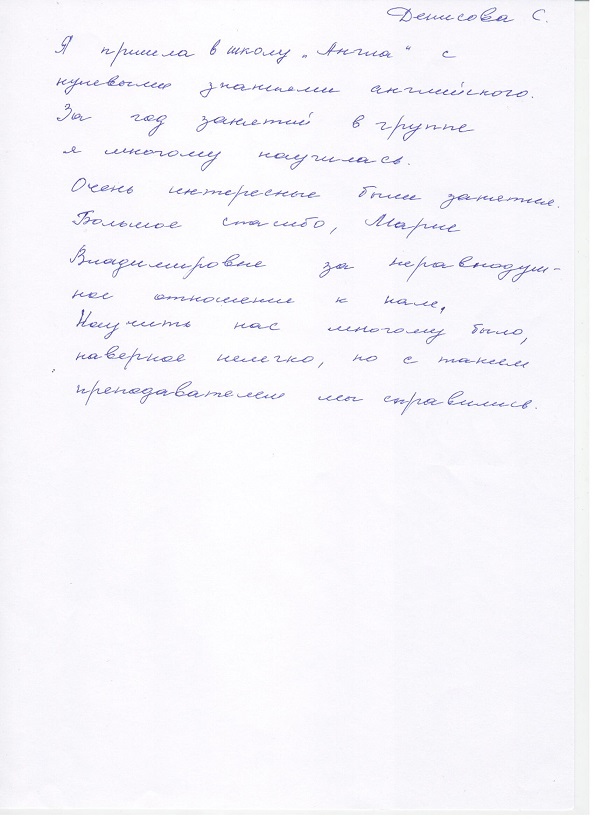 Денисова С.
Я пришла в школу „Англа“ с
нулевыми знаниями английского.
За год занятий в группе
я многому научилась.
Очень интересные были занятия.
Большое спасибо, Марие
Владимировне за неравнодуш-
ное отношение к нам.
Научить нас многому было,
наверное нелегко, но с таким
преподавателем мы справились.